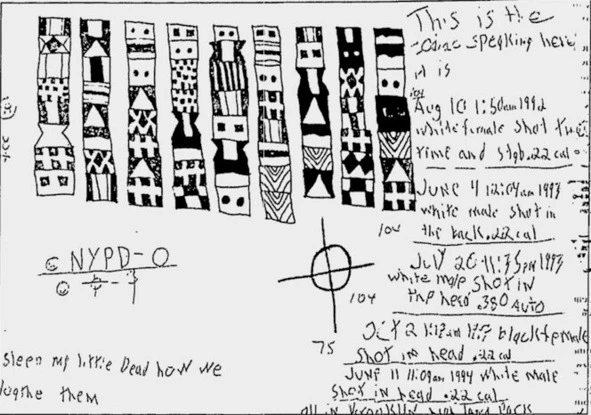 This is the
speaking here
it is
Aug 10 1:50am 1992
white female shot
time and stab .22 cal
JUNE 4 12:04am 1993
white male shot in
104 the back .22 cal
JULY 20 11:35pm 1993
white male shot in
the head .380 AUTO
OCT 2 black female
shot in head .22 cal
JUNE 11 11:09am 1994 white male
shot in head .22 cal
all in
NYPD-0
104
75
sleep my little Dead how we
them